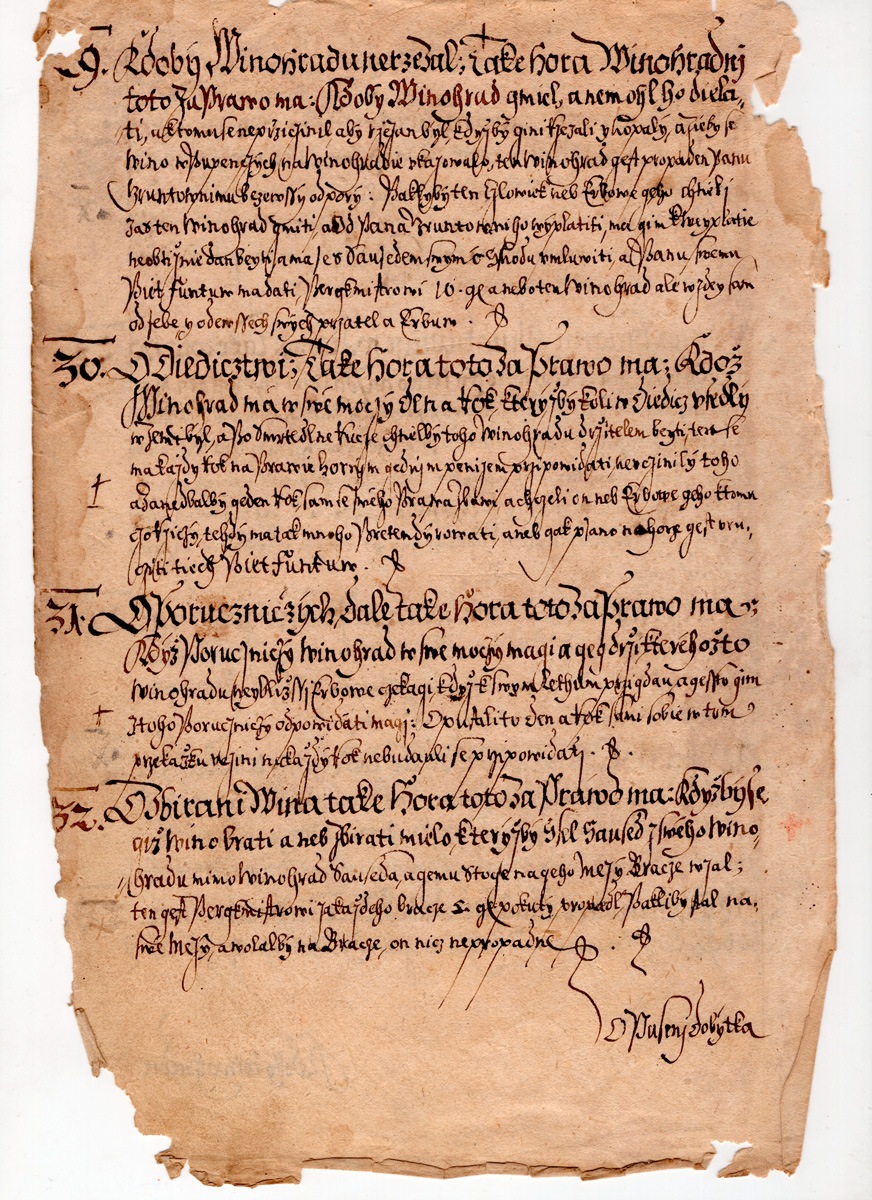 9. Kdoby Winohradu nerzezal; Take hora Winohradnj
toto za Prawo ma: Kdoby Winohrad gmiel, a nemohl ho diela-
ti, a ktomu se neprziczinil aby rzezan byl, kdyžby gini rzezali, y kopaly, a
Wino w Pupenczych, na Winohradie vkazowalo, ten Winohrad gest propaden Panu
Gruntownimu beze wssy odpory: Paklyby ten Czlowiek neb Erbowe geho chtieli
zas ten Winohrad gmiti, a od Pana Gruntowniho wyplatiti, ma gim k wyplatie
dan beyti, a ma se s Sausedem swym o sskodu vmluwiti, a Panu swemu
Piet funtuw ma dati, Pergkmistrowi 10. ge anebo ten Winohrad ale wzdy sam
od sebe, y ode wssech swych przatel a Erbuw.
30. O Diedicztwi; Take Hora toto za Prawo ma; Kdož
Winohrad má w swe moczy den a Rok, kteryžby koli Diedicz
w zemi byl, a Po Smrtedlne chtielby toho Winohradu držitelem beyti, ten se
ma každy Rok na Prawie Hornim gednjm penizem przipowidati, neucziniliby toho
a zanedbalby geden Rok, sam se sweho Prawa zbawi, a chtieli on neb Erbowe geho k tomu
tehdy ma tak mnoho Pretendyrowati, aneb gak psano na horze gest
tiech Piet funtuw.
31. O Porucznicžych, dale take Hora toto za Prawo ma;
Když Poruczniczy Winohrad w swe moczy magi a geg drži, kterehožto
Winohradu neyblizssi Erbowe czekagi, když k swym Lethum przigdau, a gessto gim
z toho Poruczniczy odpowidati magi; Opustiliby den a Rok sami sobie w tom
przekazku vczini, na každy Rok nebudauli se przipowidati.
32. O Zbirani Wina take Hora toto za Prawo ma: Kdyžby se
giž Wino brati a neb zbirati mielo, kteryžby ssel Saused z sweho Wino-
hradu mimo Winohrad Sauseda, a gemu stoge na geho Mezy Bracze wzal;
ten gest Pergkmistrowi z každeho bracze ge pokuty propadl, Pakliby stal na
swe Mezy, a wolalby na Bracze, on nicz nepropadne.
O Pusstenj dobytka